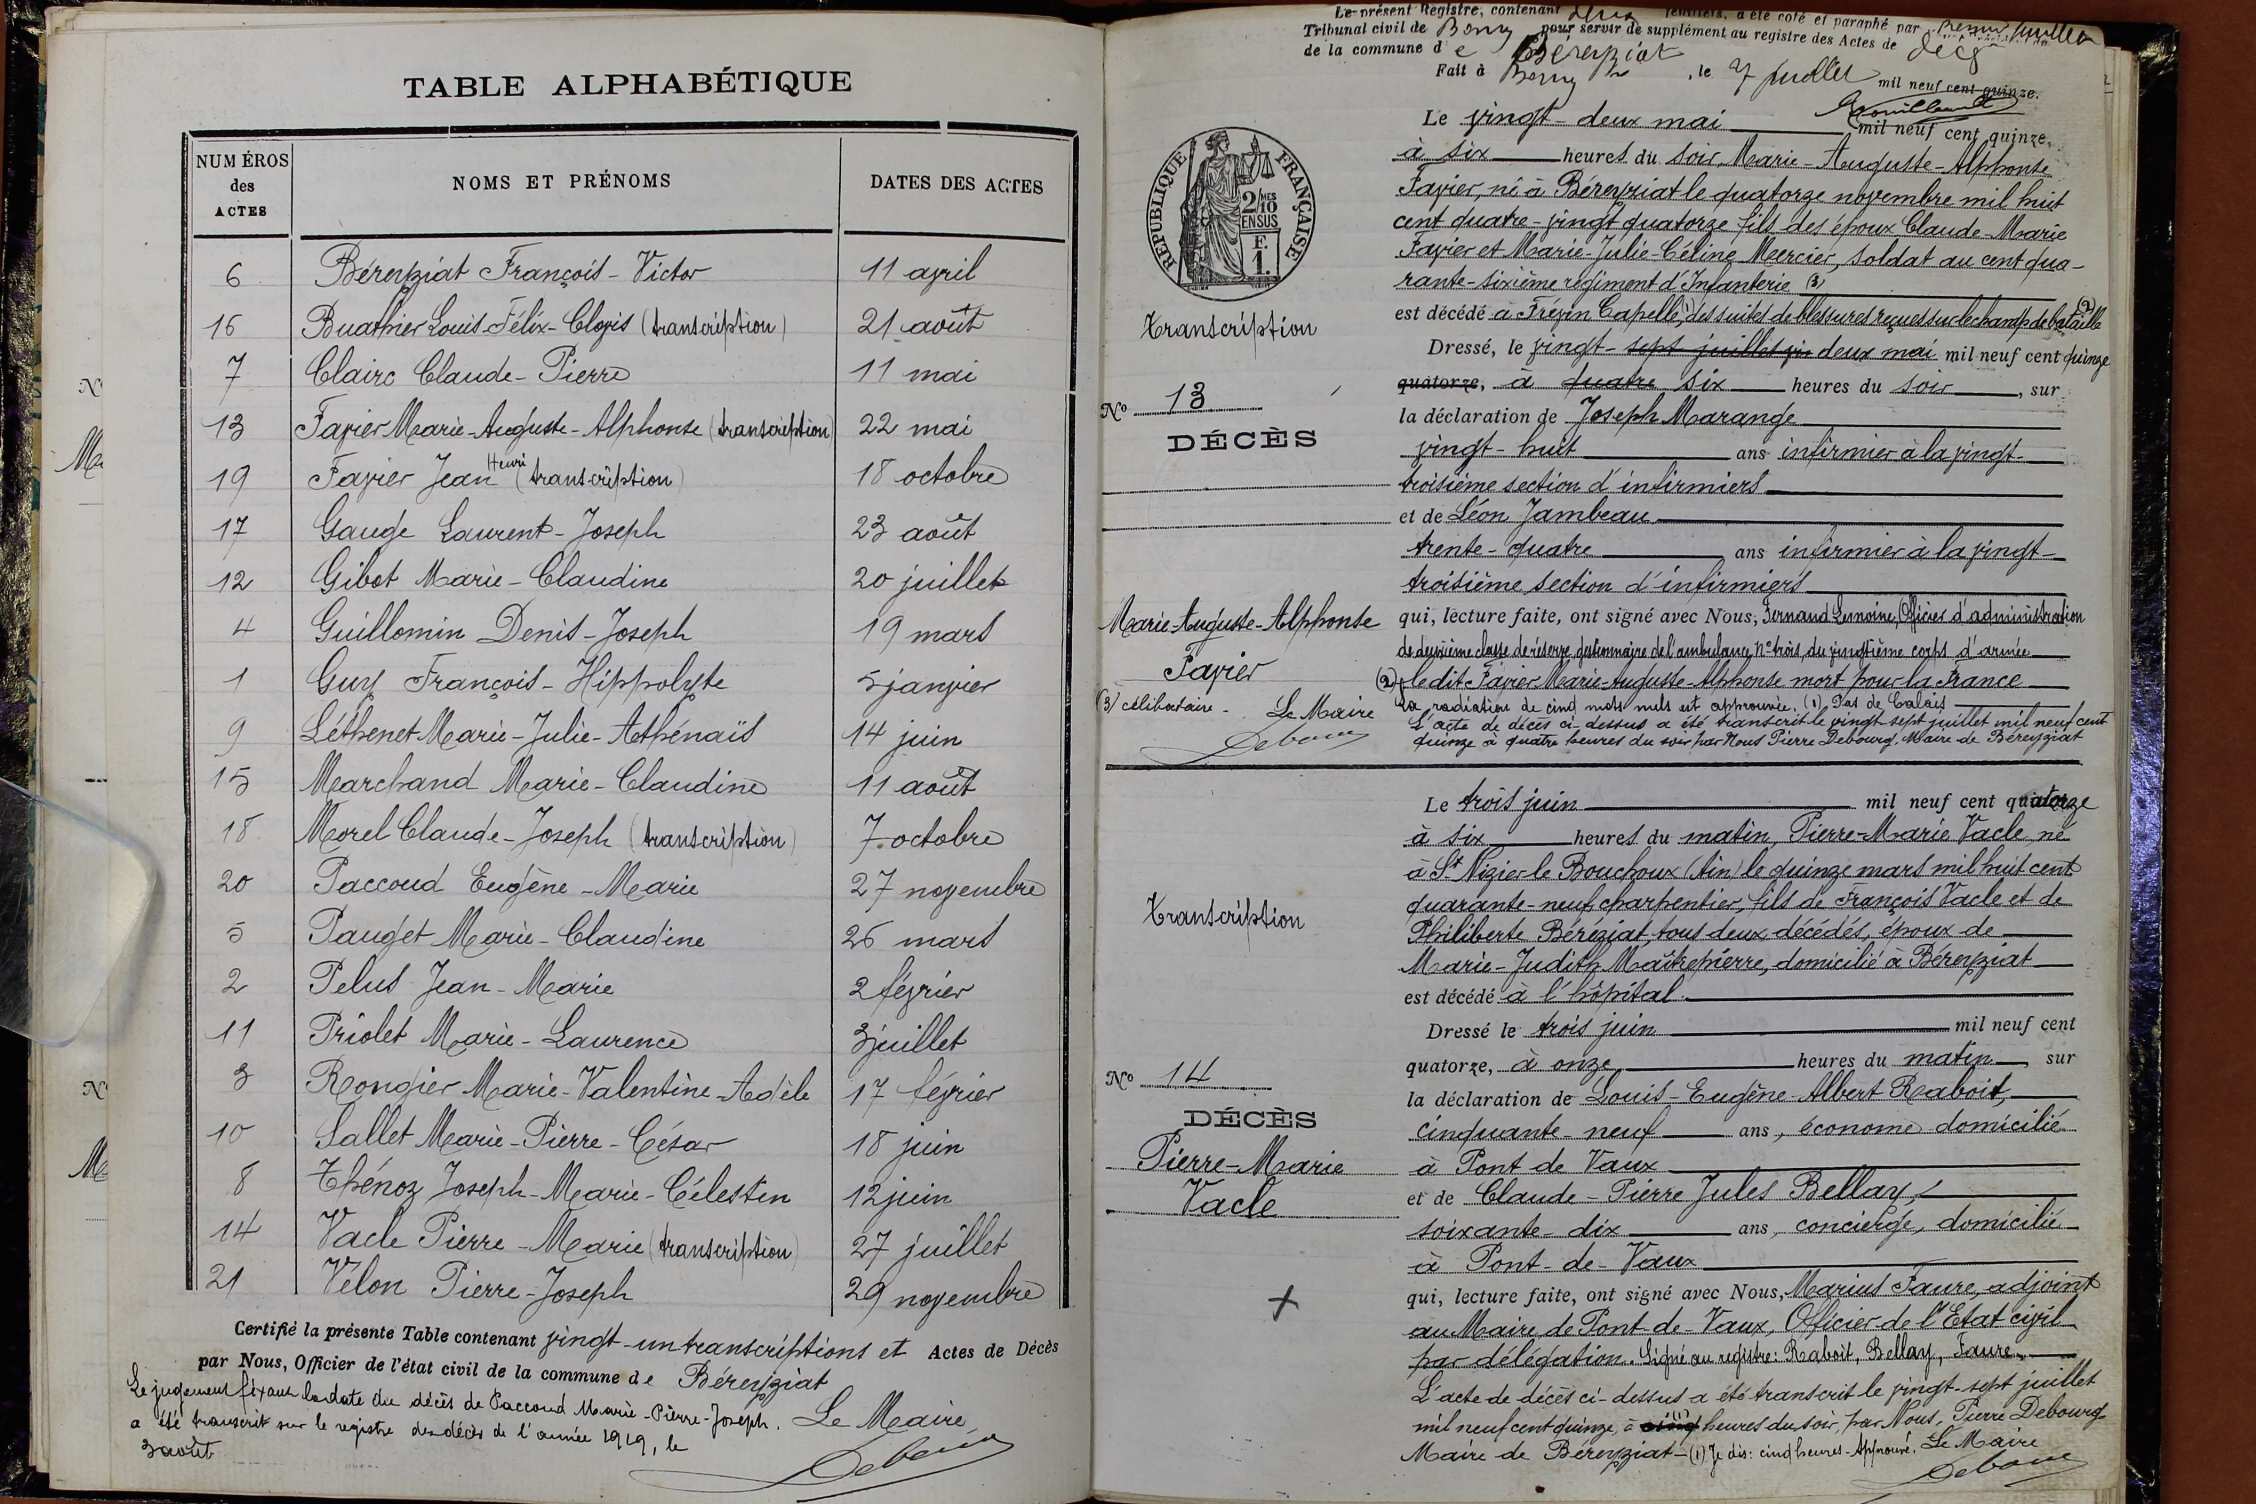 TABLE ALPHABÉTIQUE
NUMÉROS des ACTES
NOMS ET PRÉNOMS
DATES DES ACTES
6 Béreyziat François-Victor 11 avril
16 Buathier Louis-Félix-Clovis (transcription) 21 août
7 Clairc Claude-Pierre 11 mai
13 Favier Marie-Auguste-Alphonse (transcription) 22 mai
19 Favier Jean Henri (transcription) 18 octobre
17 Gauge Laurent-Joseph 23 août
12 Gibot Marie-Claudine 20 juillet
4 Guillomin Denis-Joseph 19 mars
1 Guy François-Hippolyte 5 janvier
9 Léthenet Marie-Julie-Athénaïs 14 juin
15 Marchand Marie-Claudine 11 août
18 Morel Claude-Joseph (transcription) 7 octobre
20 Paccoud Eugène-Marie 27 novembre
5 Pauget Marie-Claudine 26 mars
2 Pelus Jean-Marie 2 février
11 Priolet Marie-Laurence 3 juillet
3 Rongier Marie-Valentine-Adèle 17 février
10 Sallet Marie-Pierre-César 18 juin
8 Thénoz Joseph-Marie-Célestin 12 juin
14 Vacle Pierre-Marie (transcription) 27 juillet
21 Velon Pierre-Joseph 29 novembre
Certifié la présente Table contenant vingt-un transcriptions et Actes de Décès
par Nous, Officier de l'état civil de la commune de Béreyziat
Le jugement fixant la date du décès de Paccoud Marie-Pierre-Joseph.
a été transcrit sur le registre des décès de l'année 1919, le
3 août
Le Maire
Le présent Registre, contenant deux feuillets, a été coté et paraphé par
Tribunal civil de Bourg pour servir de supplément au registre des Actes de décès
de la commune de Béreyziat
Fait à Bourg, le 27 juillet mil neuf cent quinze.
RÉPUBLIQUE FRANÇAISE
2/10 MES
EN SUS
F. 1.
Transcription
N° 13
DÉCÈS
Marie-Auguste-Alphonse
Favier
(3) célibataire. Le Maire
Le vingt-deux mai mil neuf cent quinze,
à six heures du soir, Marie-Auguste-Alphonse
Favier, né à Béreyziat le quatorze novembre mil huit
cent quatre-vingt quatorze fils des époux Claude-Marie
Favier et Marie-Julie-Céline Mercier, soldat au cent qua-
rante-sixième régiment d'Infanterie (3)
est décédé à Frévin Capelle (1), des suites de blessures reçues sur le champ de bataille (2)
Dressé, le vingt-sept juillet vin deux mai mil neuf cent quinze
quatorze, à quatre six heures du soir, sur
la déclaration de Joseph Marange
vingt-huit ans infirmier à la vingt-
troisième section d'infirmiers
et de Léon Jambeau
trente-quatre ans infirmier à la vingt-
troisième section d'infirmiers
qui, lecture faite, ont signé avec Nous, Fernand Lemoine, Officier d'administration
de deuxième classe de réserve, gestionnaire de l'ambulance n° trois, du vingtième corps d'armée
(2) le dit Favier Marie-Auguste-Alphonse mort pour la France
La radiation de cinq mots nuls est approuvée. (1) Pas de Calais
L'acte de décès ci-dessus a été transcrit le vingt-sept juillet mil neuf cent
quinze à quatre heures du soir par Nous Pierre Debourg, Maire de Béreyziat
Transcription
N° 14
DÉCÈS
Pierre-Marie
Vacle
Le trois juin mil neuf cent quatorze
à six heures du matin, Pierre-Marie Vacle, né
à St Nizier le Bouchoux (Ain) le quinze mars mil huit cent
quarante-neuf, charpentier, fils de François Vacle et de
Philiberte Béréziat, tous deux décédés, époux de
Marie-Judith Maîtrepierre, domicilié à Béreyziat
est décédé à l'hôpital.
Dressé le trois juin mil neuf cent
quatorze, à onze heures du matin, sur
la déclaration de Louis-Eugène-Albert Raboit,
cinquante-neuf ans, économe domicilié
à Pont de Vaux
et de Claude-Pierre Jules Bellay,
soixante-dix ans, concierge, domicilié
à Pont-de-Vaux
qui, lecture faite, ont signé avec Nous, Marius Faure, adjoint
au Maire de Pont-de-Vaux, Officier de l'Etat civil
par délégation. Signé au registre: Raboit, Bellay, Faure.
L'acte de décès ci-dessus a été transcrit le vingt-sept juillet
mil neuf cent quinze, à cinq (1) heures du soir, par Nous, Pierre Debourg
Maire de Béreyziat - (1) Je dis: cinq heures. Approuvé. Le Maire